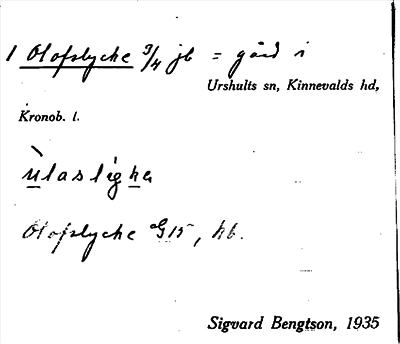 1 Olofslycke 3/4 jb = gård i
Urshults sn, Kinnevalds hd,
Kronob. l.
ùlaslýgha
Olofslycke G15, hb.
Sigvard Bengtson, 1935